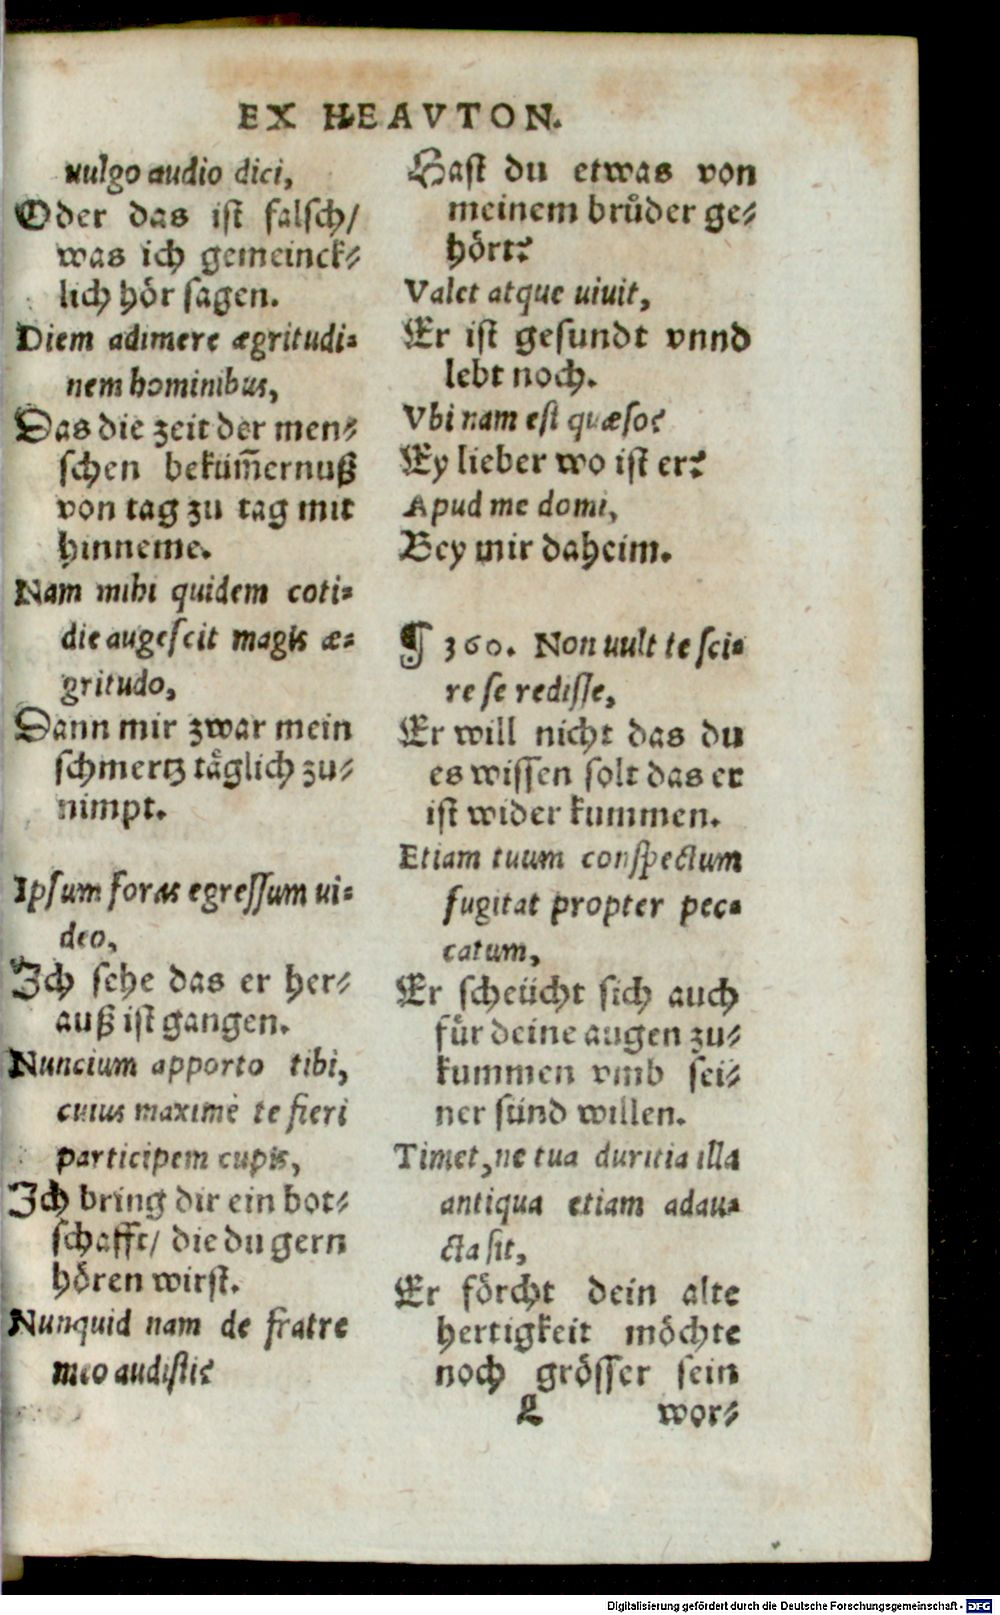 EX HEAVTON.
uulgo audio dici,
Oder das ist falsch/
was ich gemeinck⸗
lich hör sagen.
Diem adimere ægritudi⸗
nem hominibus,
Das die zeit der men⸗
schen beküm̃ernuß
von tag zu tag mit
hinneme.
Nam mihi quidem coti⸗
die augescit magis æ⸗
gritudo,
Dann mir zwar mein
schmertz täglich zu⸗
nimpt.
Ipsum foras egressum ui⸗
deo,
Ich sehe das er her⸗
auß ist gangen.
Nuncium apporto tibi,
cuius maximè te fieri
participem cupis,
Ich bring dir ein bot⸗
schafft/ die du gern
hören wirst.
Nunquid nam de fratre
meo audisti?
Hast du etwas von
meinem brůder ge⸗
hört?
Valet atque uiuit,
Er ist gesundt vnnd
lebt noch.
Vbi nam est quæso?
Ey lieber wo ist er?
Apud me domi,
Bey mir daheim.
¶ 360. Non uult te sci⸗
re se redisse,
Er will nicht das du
es wissen solt das er
ist wider kummen.
Etiam tuum conspectum
fugitat propter pec⸗
catum,
Er scheücht sich auch
für deine augen zu⸗
kummen vmb sei⸗
ner sünd willen.
Timet, ne tua duritia illa
antiqua etiam adau⸗
cta sit,
Er förcht dein alte
hertigkeit möchte
noch grösser sein
L wor⸗
Digitalisierung gefördert durch die Deutsche Forschungsgemeinschaft - DFG